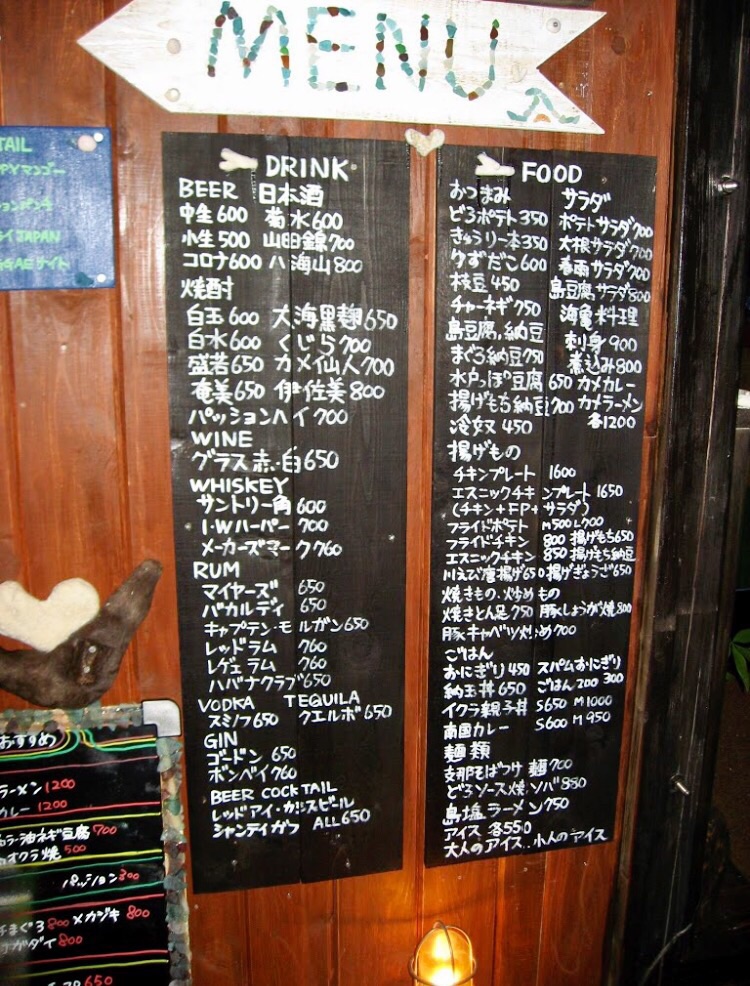 MENU
TAIL
PPYマンゴー
ションパンチ
イJAPAN
GGAEサイト
DRINK
BEER 日本酒
中生600 菊水600
小生500 山田錦700
コロナ600 八海山800
焼酎
白玉600 大海黒麹650
白水600 くじら700
盛若650 カメ仙人700
奄美650 伊佐美800
パッションハイ700
WINE
グラス赤・白650
WHISKEY
サントリー角600
I・Wハーパー 700
メーカーズマーク760
RUM
マイヤーズ 650
バカルディ 650
キャプテン・モルガン650
レッドラム 760
レゲエラム 760
ハバナクラブ650
VODKA TEQUILA
スミノフ650 クエルボ650
GIN
ゴードン 650
ボンベイ760
BEER COCKTAIL
レッドアイ・カシスビール
シャンディガフ ALL650
FOOD
おつまみ サラダ
どろポテト350 ポテトサラダ700
きゅうり一本350 大根サラダ700
りずだこ600 春雨サラダ700
枝豆450 島豆腐サラダ800
チャーネギ750 海亀料理
島豆腐納豆 刺身900
まぐろ納豆750 煮込み800
水戸っぽ豆腐650 カメカレー
揚げもち納豆700 カメラーメン
冷奴450 各1200
揚げもの
チキンプレート 1600
エスニックチキンプレート1650
(チキン+FP+サラダ)
フライドポテト M500L700
フライドチキン 800 揚げもち650
エスニックチキン 850 揚げもち納豆
川えび唐揚げ650 揚げぎょうざ650
焼きもの、炒めもの
焼きとん足750 豚しょうが焼800
豚キャベツ炒め700
ごはん
おにぎり450 スパムおにぎり
納玉丼650 ごはん200 300
イクラ親子丼 S650 M1000
南国カレー S600 M950
麺類
支那そばつけ麺700
どろソース焼ソバ880
島塩ラーメン750
アイス 各550
大人のアイス、小人のアイス
おすすめ
ラーメン1200
カレー1200
ラー油ネギ豆腐700
オクラ焼500
パッション300
まぐろ800 メカジキ800
ダイ800
650